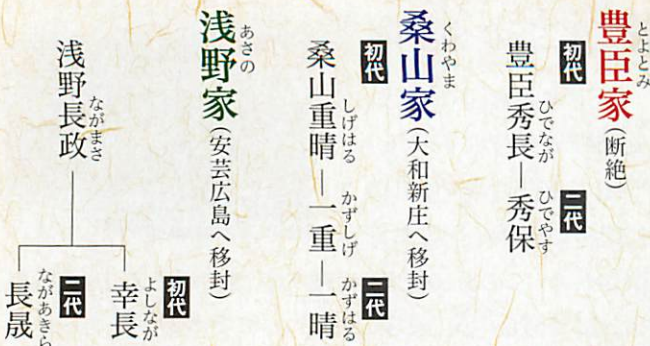 豊臣家（断絶）
とよとみ
初代 二代
豊臣秀長―秀保
ひでなが ひでやす
桑山家（大和新庄へ移封）
くわやま
初代 二代
桑山重晴―一重―一晴
しげはる かずしげ かずはる
浅野家（安芸広島へ移封）
あさの
浅野長政
ながまさ
初代
幸長
よしなが
二代
長晟
ながあきら